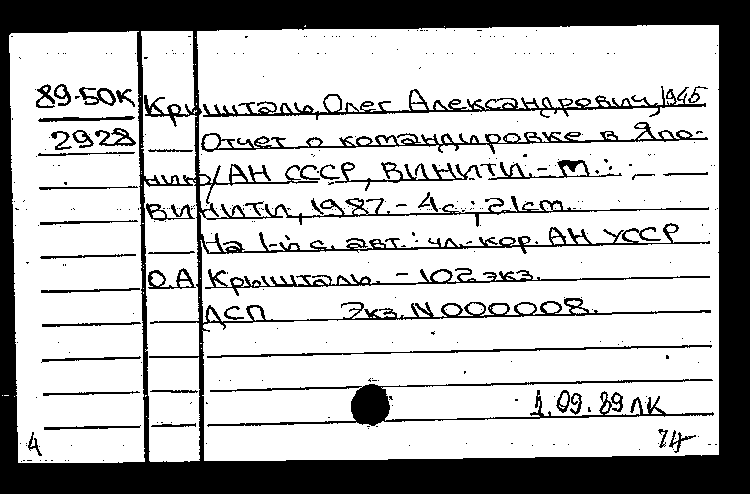 89-БОК Крышталь, Олег Александрович, 1945
2928 Отчет о командировке в Япо-
нию / АН СССР, ВИНИТИ. - М. : ;
ВИНИТИ, 1987. - 4 с. ; 21 cm.
На 1-й с. авт. : чл.-кор. АН УССР
О.А. Крышталь. - 102 экз.
ДСП Экз. N 000008.
1.09.89 ЛК
4